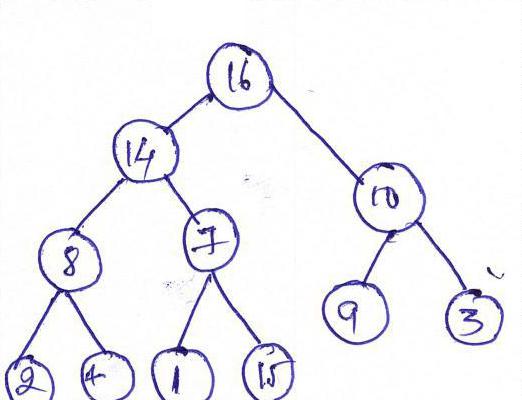 16
14
10
8
7
9
3
2
4
1
15